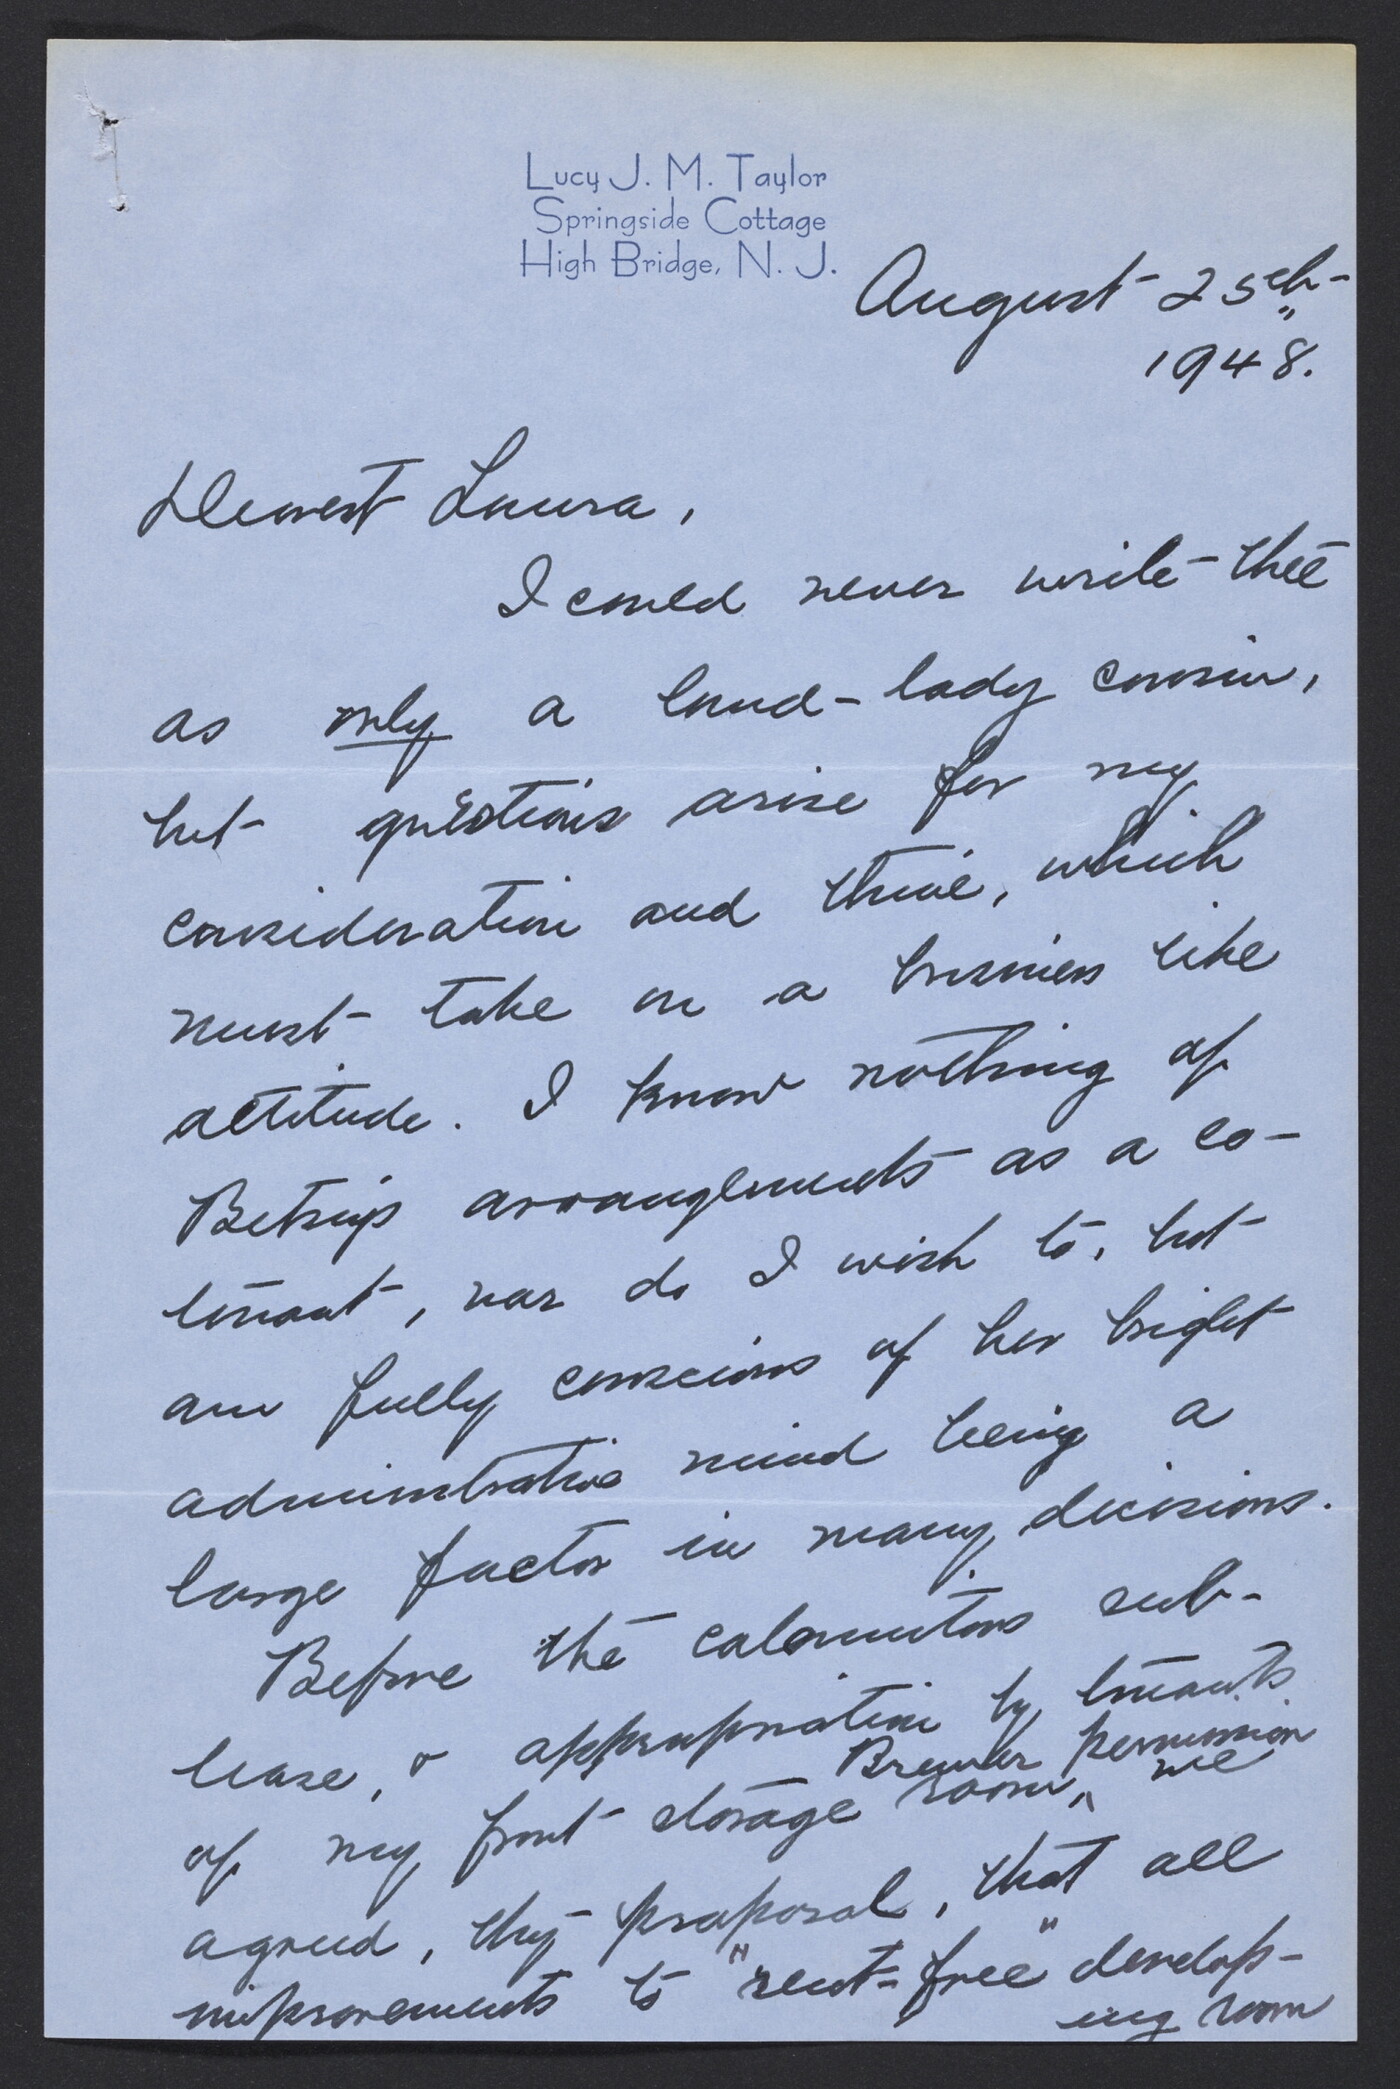 Lucy J. M. Taylor
Springside Cottage
High Bridge, N. J.
August 25th
1948.
Dearest Laura,
I could never write thee
as only a land-lady cousin,
but questions arise for my
consideration and thine, which
must take on a business like
attitude. I know nothing of
Betsey's arrangements as a co-
tenant, nor do I wish to, but
am fully conscious of her bright
administrative mind being a
large factor in many decisions.
Before the calamitous sub-
lease, & appropriation by tenants
Brewer permission
of my front storage room, we
agreed, thy proposal, that all
improvements to "rent-free" develop-
ing room